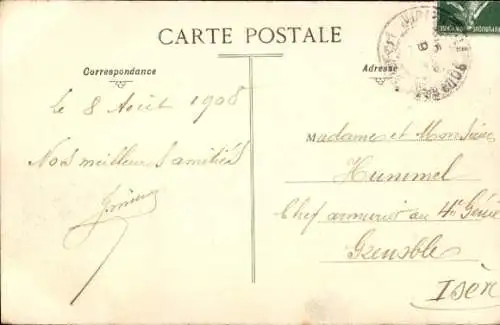 CARTE POSTALE
Correspondance
Adresse
le 8 Août 1908
Nos meilleurs amitiés
Madame et Monsieur
Hummel
Chef armurier au 4e Génie
Grenoble
Isère